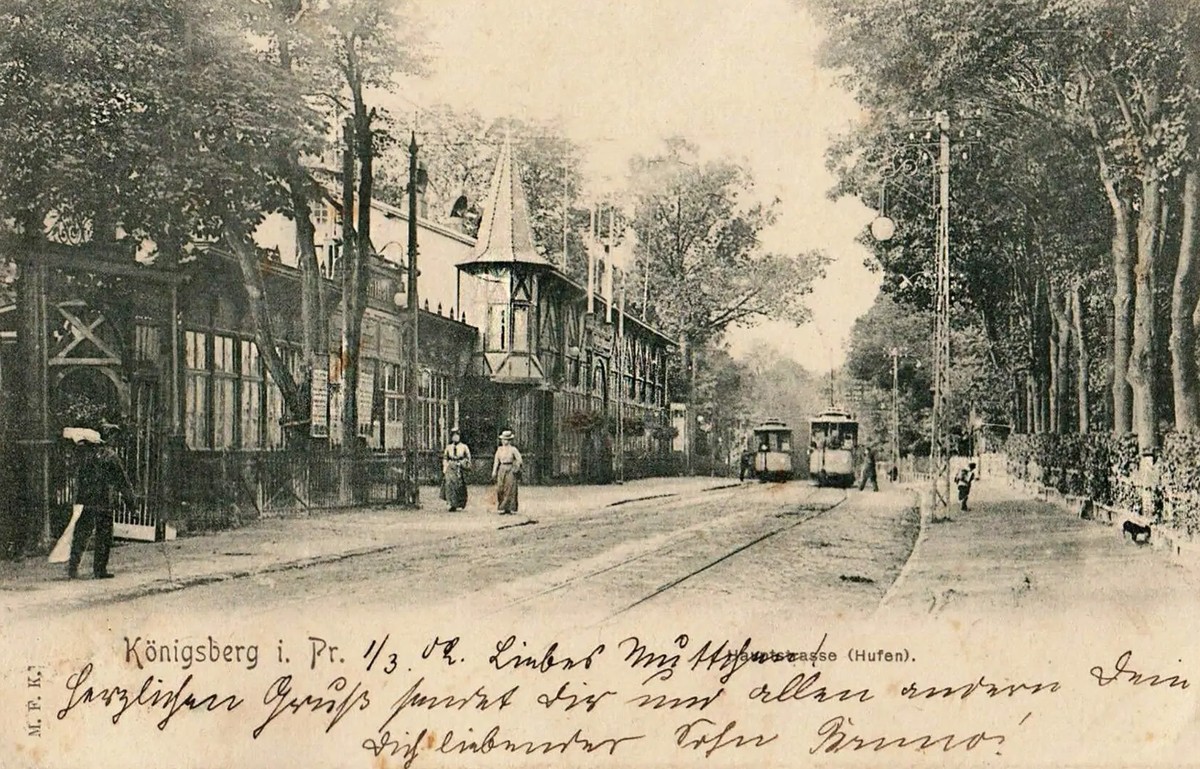 Königsberg i. Pr. 1/3. 02. Liebes Muttchen! Hauptstrasse (Hufen).
Herzlichen Gruß sendet Dir und allen andern Dein
Dich liebender Sohn Bruno!
M. F. K.